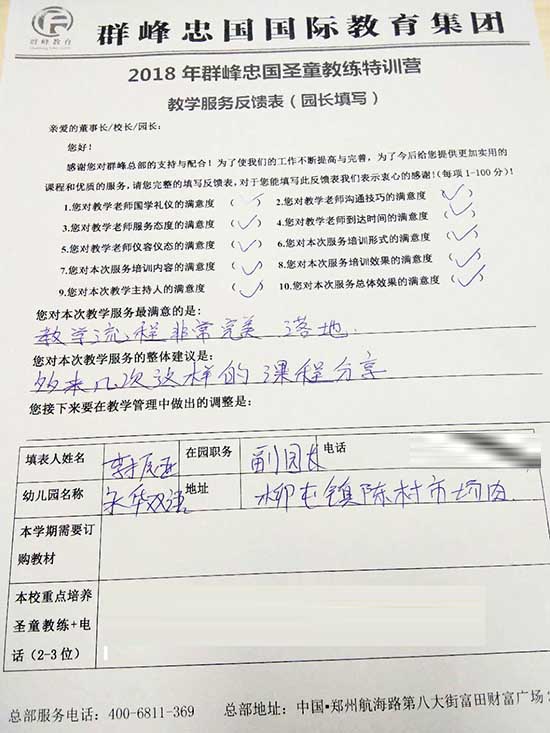 群峰教育
群峰忠国国际教育集团
2018 年群峰忠国圣童教练特训营
教学服务反馈表（园长填写）
亲爱的董事长/校长/园长：
您好！
感谢您对群峰总部的支持与配合！为了使我们的工作不断提高与完善，为了今后给您提供更加实用的
课程和优质的服务，请您完整的填写反馈表，对于您能填写此反馈表我们表示衷心的感谢！(每项 1-100 分)！
1.您对教学老师国学礼仪的满意度 （✓） 2.您对教学老师沟通技巧的满意度 （✓）
3.您对教学老师服务态度的满意度 （✓） 4.您对教学老师到达时间的满意度 （✓）
5.您对教学老师仪容仪态的满意度 （✓） 6.您对本次服务培训形式的满意度 （✓）
7.您对本次服务培训内容的满意度 （✓） 8.您对本次服务培训效果的满意度 （✓）
9.您对本次教学主持人的满意度 （✓） 10.您对本次服务总体效果的满意度 （✓）
您对本次教学服务最满意的是：
教学流程非常完美 落地.
您对本次教学服务的整体建议是：
多来几次这样的课程分享
您接下来要在教学管理中做出的调整是：
填表人姓名 在园职务 副园长 电话
幼儿园名称 荣华双语 地址 柳屯镇陈村市场内
本学期需要订
购教材
本校重点培养
圣童教练+电
话（2-3 位）
总部服务电话：400-6811-369 总部地址：中国•郑州航海路第八大街富田财富广场